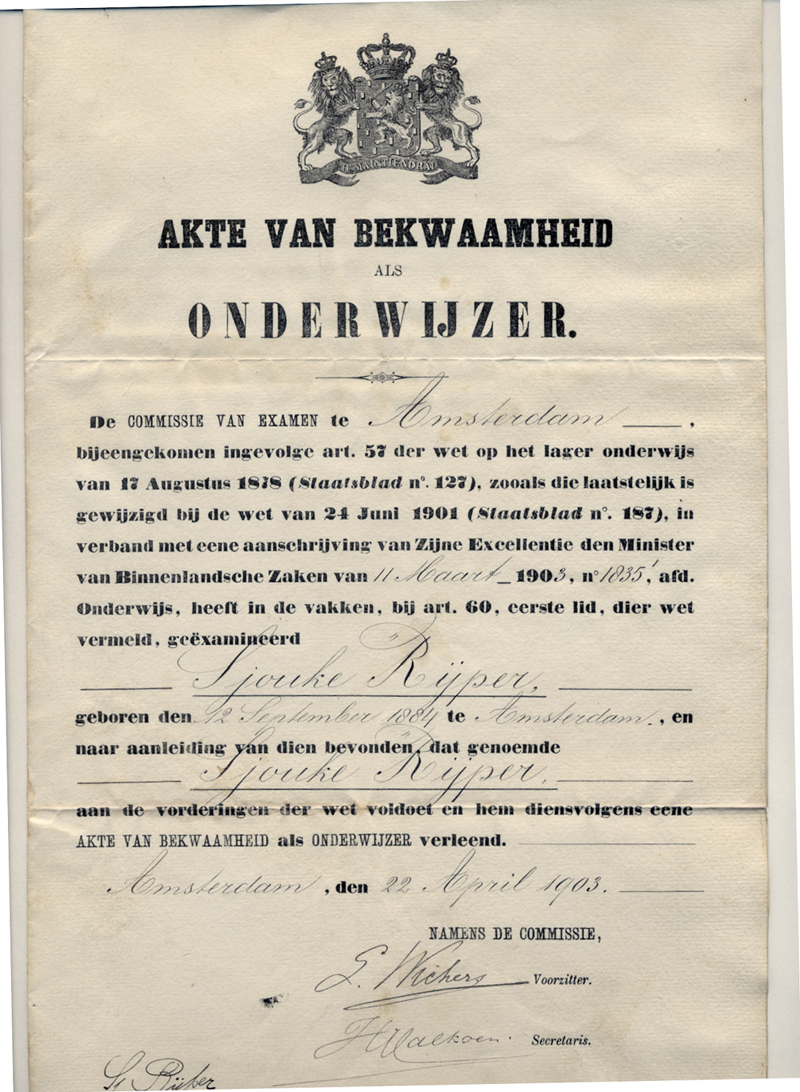 JE MAINTIENDRAI
AKTE VAN BEKWAAMHEID
ALS
ONDERWIJZER.
De COMMISSIE VAN EXAMEN te Amsterdam ,
bijeengekomen ingevolge art. 57 der wet op het lager onderwijs
van 17 Augustus 1878 (Staatsblad n°. 127), zooals die laatstelijk is
gewijzigd bij de wet van 24 Juni 1901 (Staatsblad n°. 187), in
verband met eene aanschrijving van Zijne Excellentie den Minister
van Binnenlandsche Zaken van 11 Maart 1903, n° 1835', afd.
Onderwijs, heeft in de vakken, bij art. 60, eerste lid, dier wet
vermeld, geëxamineerd
Sjouke Rijper,
geboren den 12 September 1884 te Amsterdam, en
naar aanleiding van dien bevonden, dat genoemde
Sjouke Rijper,
aan de vorderingen der wet voldoet en hem diensvolgens eene
AKTE VAN BEKWAAMHEID als ONDERWIJZER verleend.
Amsterdam, den 22 April 1903.
NAMENS DE COMMISSIE,
G. Wichers Voorzitter.
Secretaris.
Sj Rijper